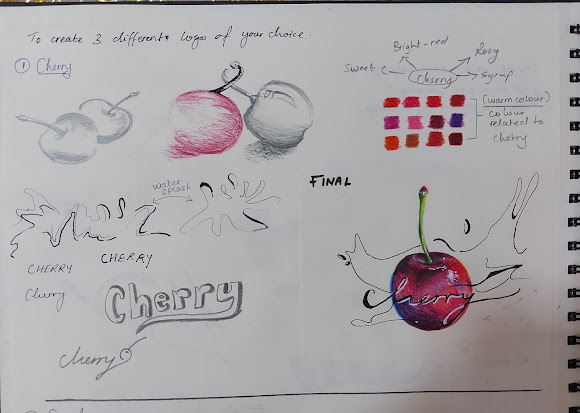 To create 3 different logos of your choice.
① Cherry
Bright-red
Rosy
Sweet
Cherry
Syrup
(warm colour)
Colour
related to
cherry
water
splash
FINAL
CHERRY
CHERRY
Cherry
Cherry
cherry
cherry